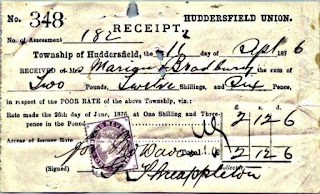 No. 348
HUDDERSFIELD UNION.
RECEIPT,
No. of Assessment 182
Township of Huddersfield, the 16 day of Sept 1876
RECEIVED of M Bradbury the sum of
Two Pounds, Twelve Shillings, and Six Pence,
in respect of the POOR RATE of the above Township, viz:
£ s. d.
Rate made the 26th day of June, 1876, at One Shilling and Three-
pence in the Pound 2 12 6
Arrear of former Rate
2 12 6
(Signed)